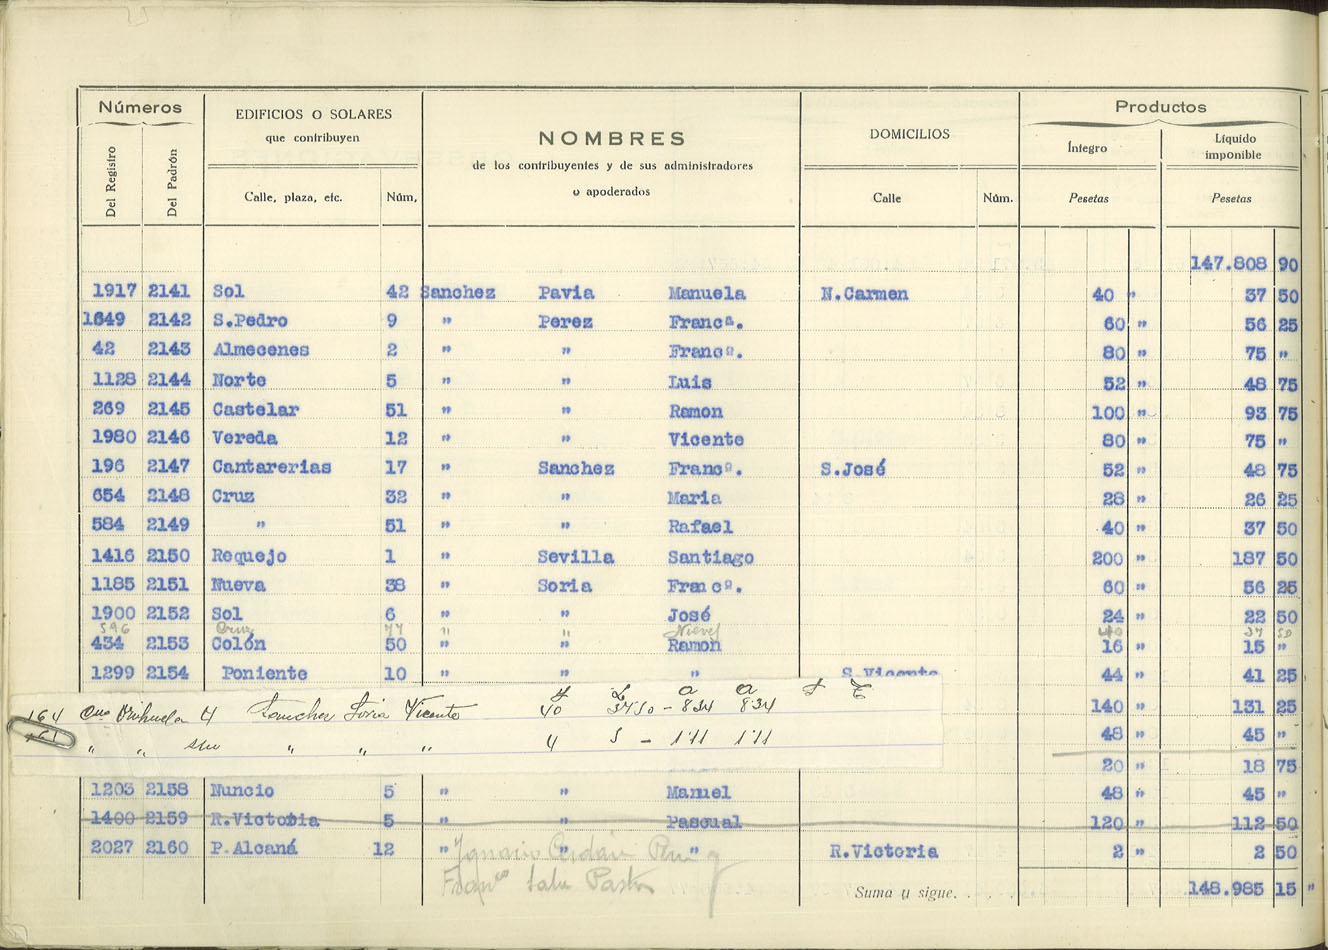 Números
EDIFICIOS O SOLARES
que contribuyen
NOMBRES
de los contribuyentes y de sus administradores
o apoderados
DOMICILIOS
Productos
Íntegro
Líquido
imponible
Del Registro Del Padrón Calle, plaza, etc. Núm. Calle Núm. Pesetas Pesetas
147.808 90
1917 2141 Sol 42 Sanchez Pavia Manuela N.Carmen 40 " 37 50
1649 2142 S.Pedro 9 " Perez Francª. 60 " 56 25
42 2143 Almecenes 2 " " Francº. 80 " 75 "
1128 2144 Norte 5 " " Luis 52 " 48 75
269 2145 Castelar 51 " " Ramon 100 " 93 75
1980 2146 Vereda 12 " " Vicente 80 " 75 "
196 2147 Cantarerias 17 " Sanchez Francº. S.José 52 " 48 75
654 2148 Cruz 32 " " Maria 28 " 26 25
584 2149 " 51 " " Rafael 40 " 37 50
1416 2150 Requejo 1 " Sevilla Santiago 200 " 187 50
1185 2151 Nueva 38 " Soria Francº. 60 " 56 25
1900 2152 Sol 6 " " José 24 " 22 50
596 Cruz 77 " " Nieves 40 37 50
434 2153 Colón 50 " " Ramon 16 " 15 "
1299 2154 Poniente 10 " " " S.Vicente 44 " 41 25
140 " 131 25
164 Orihuela 4 Sanchez Soria Vicente 40 37 50 - 8 34 8 34
48 " 45 "
" " " " " 4 5 - 1'11 1'11
20 " 18 75
1203 2158 Nuncio 5 " " Manuel 48 " 45 "
1400 2159 R.Victoria 5 " " Pascual 120 " 112 50
2027 2160 P.Alcaná 12 " " " R.Victoria 2 " 2 50
Ignacio
Suma y sigue. 148.985 15 "